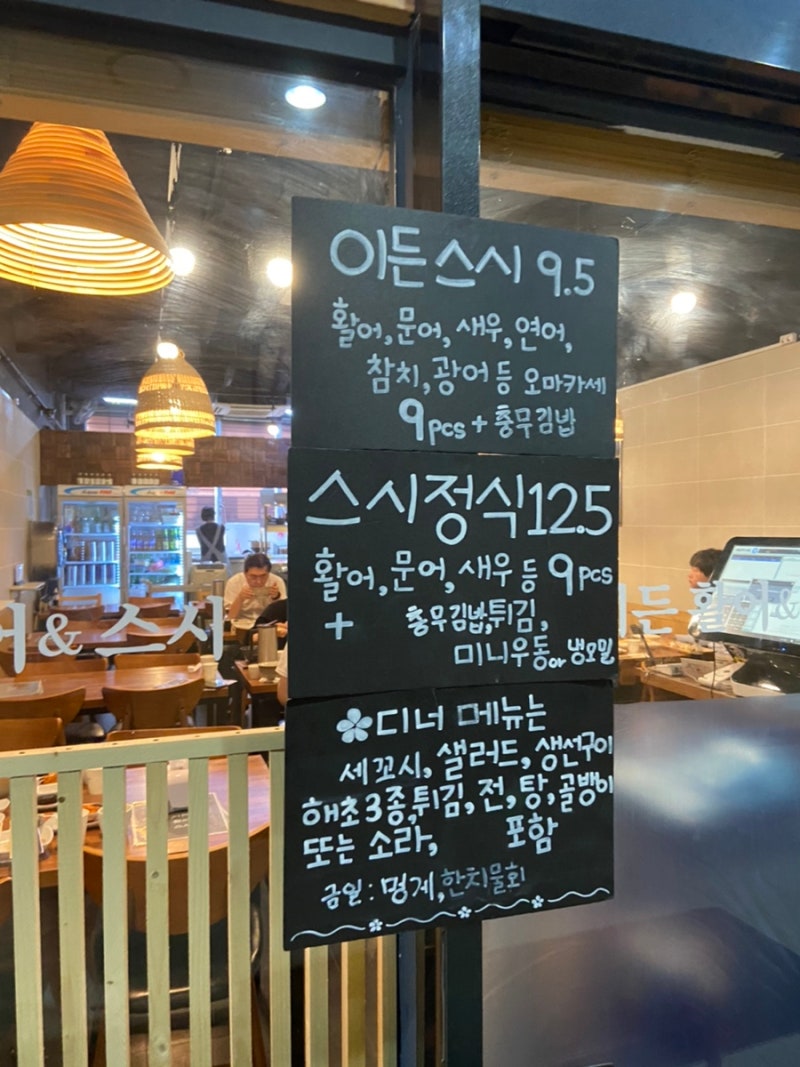 이든스시 9.5
활어, 문어, 새우, 연어,
참치, 광어 등 오마카세
9pcs + 충무김밥
스시정식 12.5
활어, 문어, 새우 등 9pcs
+ 충무김밥, 튀김,
미니우동 or 냉모밀
디너 메뉴는
세꼬시, 샐러드, 생선구이
해초3종, 튀김, 전, 탕, 골뱅이
또는 소라, 포함
금일 : 멍게, 한치물회
어 & 스시
이든활어 &